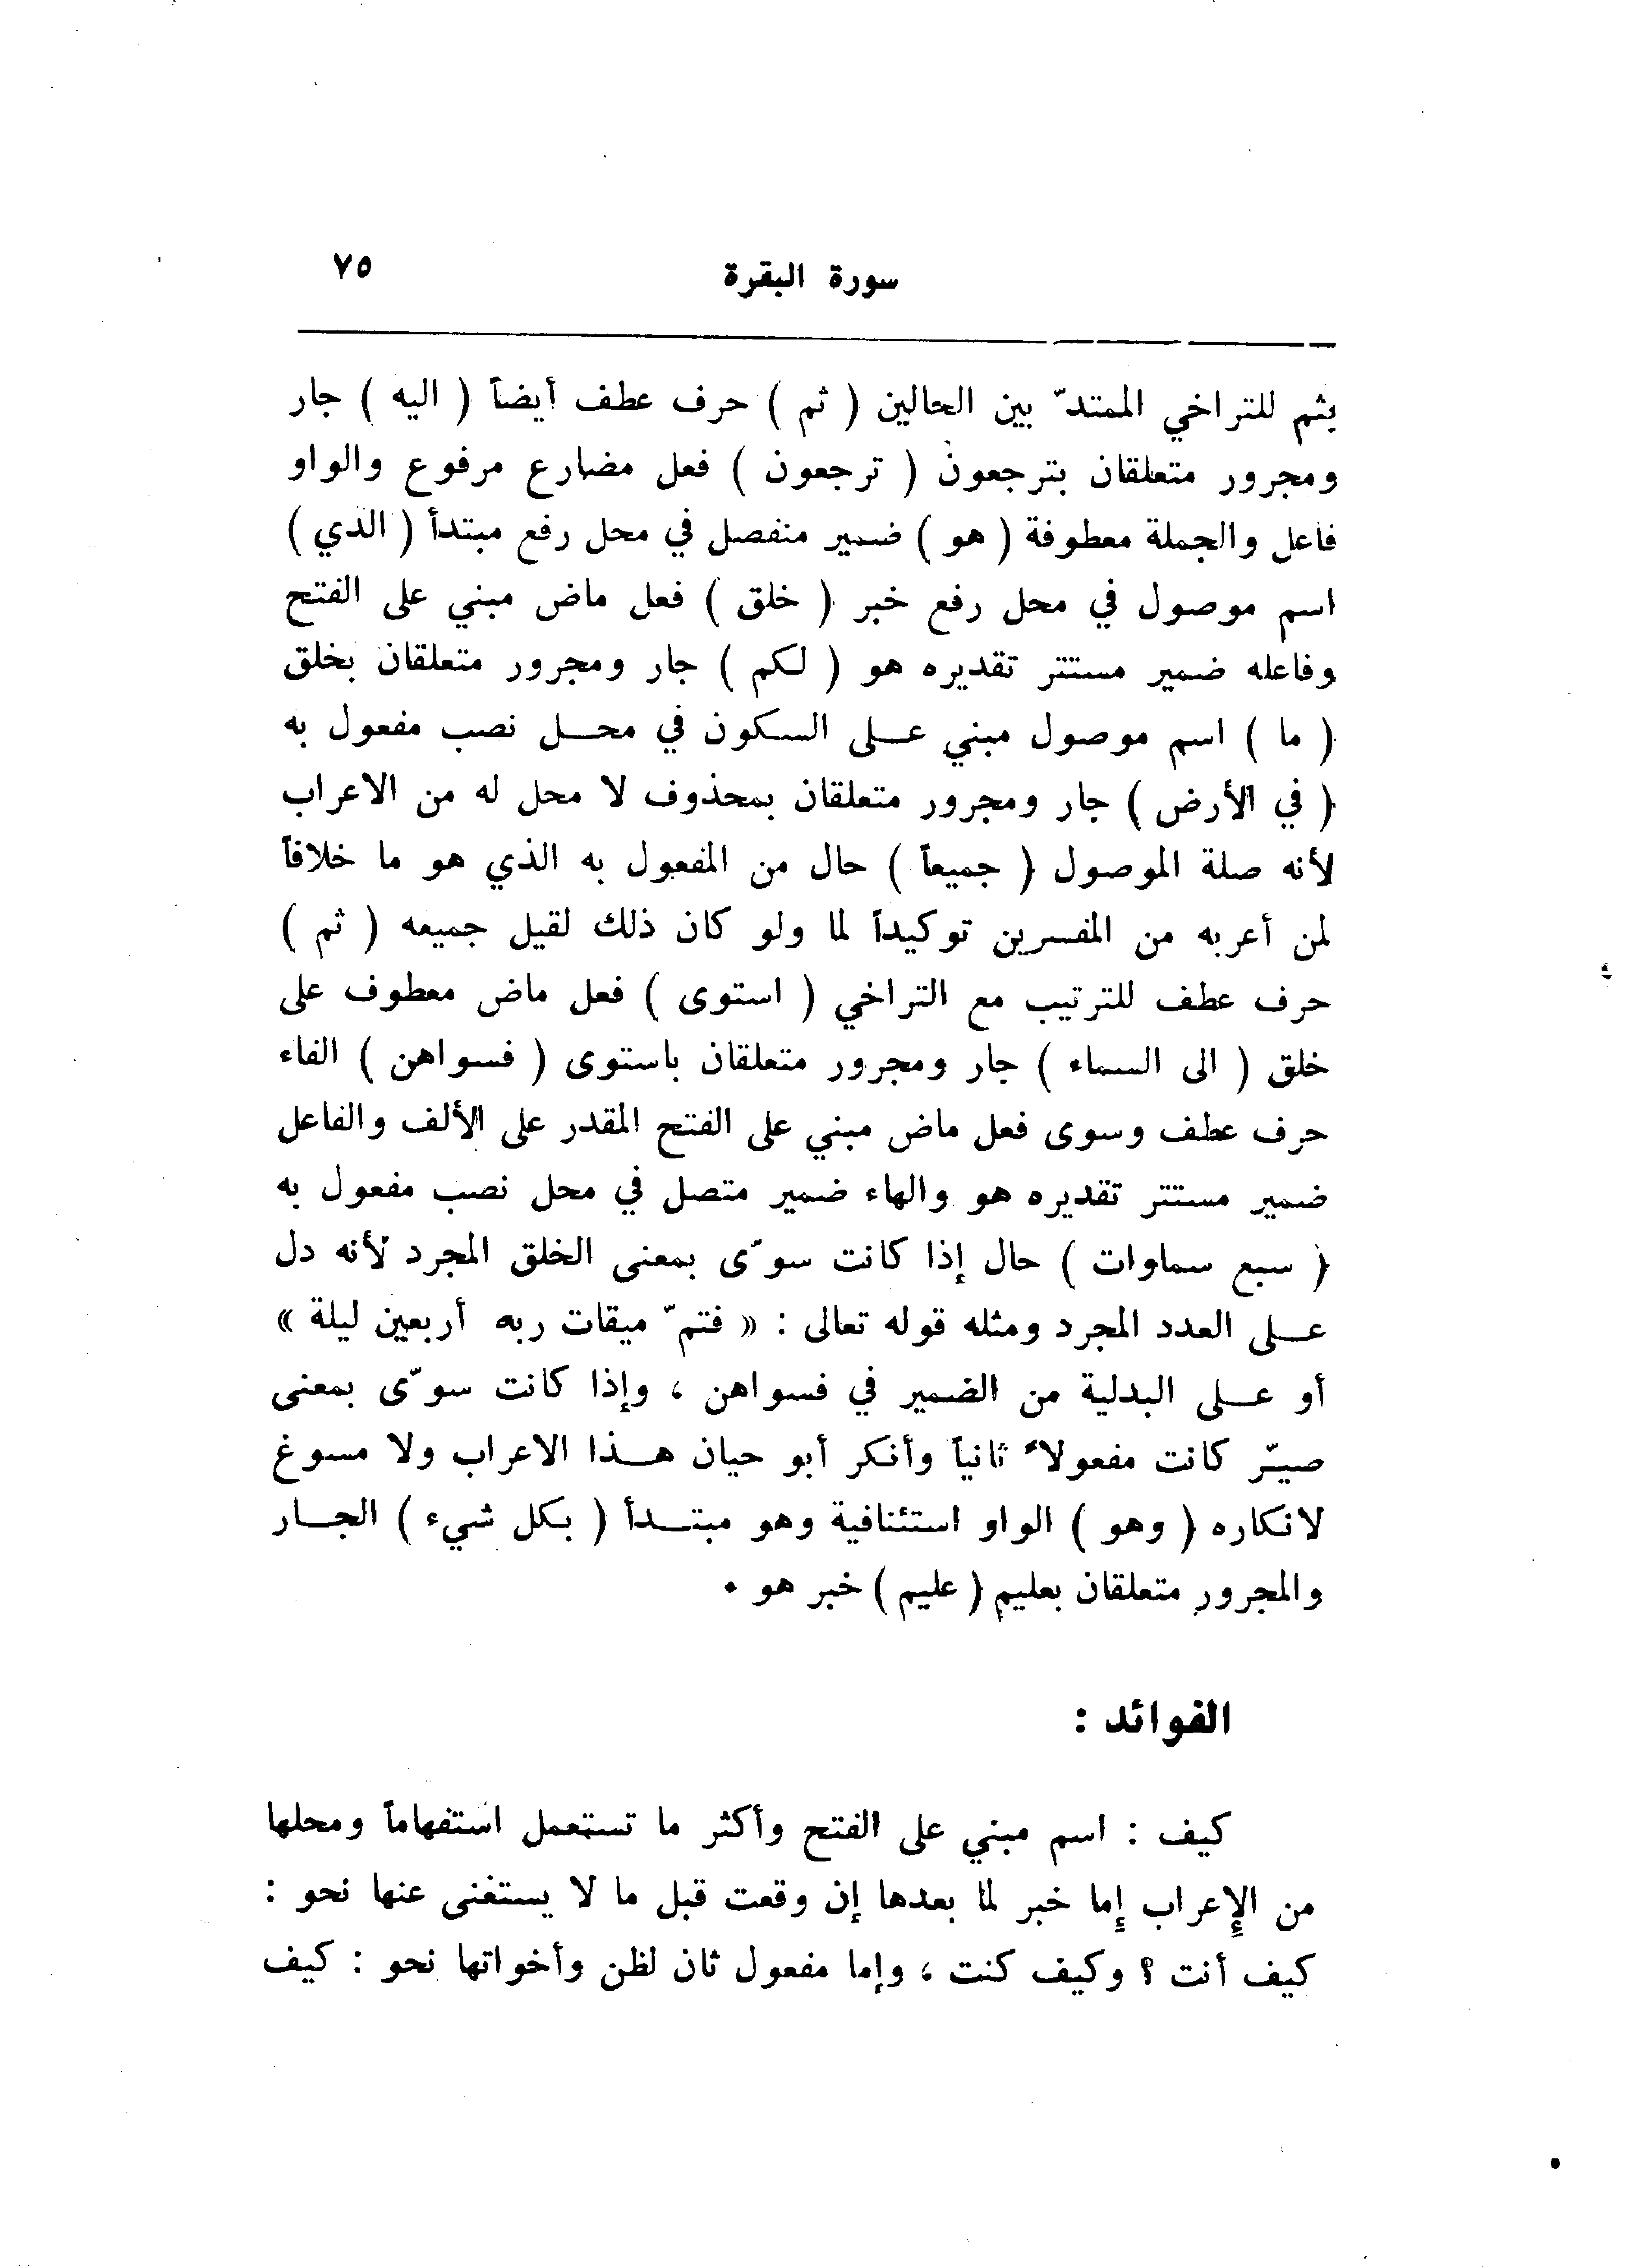 سورة البقرة ٧٥
بثم للتراخي الممتدّ بين الحالين ( ثم ) حرف عطف أيضاً ( اليه ) جار
ومجرور متعلقان بترجعون ( ترجعون ) فعل مضارع مرفوع والواو
فاعل والجملة معطوفة ( هو ) ضمير منفصل في محل رفع مبتدأ ( الذي )
اسم موصول في محل رفع خبر ( خلق ) فعل ماض مبني على الفتح
وفاعله ضمير مستتر تقديره هو ( لكم ) جار ومجرور متعلقان بخلق
( ما ) اسم موصول مبني على السكون في محل نصب مفعول به
( في الأرض ) جار ومجرور متعلقان بمحذوف لا محل له من الاعراب
لأنه صلة الموصول ( جميعاً ) حال من المفعول به الذي هو ما خلافاً
لمن أعربه من المفسرين توكيداً لما ولو كان ذلك لقيل جميعه ( ثم )
حرف عطف للترتيب مع التراخي ( استوى ) فعل ماض معطوف على
خلق ( الى السماء ) جار ومجرور متعلقان باستوى ( فسواهن ) الفاء
حرف عطف وسوى فعل ماض مبني على الفتح المقدر على الألف والفاعل
ضمير مستتر تقديره هو والهاء ضمير متصل في محل نصب مفعول به
( سبع سماوات ) حال إذا كانت سوّى بمعنى الخلق المجرد لأنه دل
على العدد المجرد ومثله قوله تعالى : « فتمّ ميقات ربه أربعين ليلة »
أو على البدلية من الضمير في فسواهن ، وإذا كانت سوّى بمعنى
صيّر كانت مفعولاً ثانياً وأنكر أبو حيان هذا الاعراب ولا مسوغ
لانكاره ( وهو ) الواو استئنافية وهو مبتدأ ( بكل شيء ) الجار
والمجرور متعلقان بعليم ( عليم ) خبر هو ٠
الفوائد :
كيف : اسم مبني على الفتح وأكثر ما تستعمل استفهاماً ومحلها
من الإعراب إما خبر لما بعدها إن وقعت قبل ما لا يستغنى عنها نحو :
كيف أنت ؟ وكيف كنت ، وإما مفعول ثان لظن وأخواتها نحو : كيف